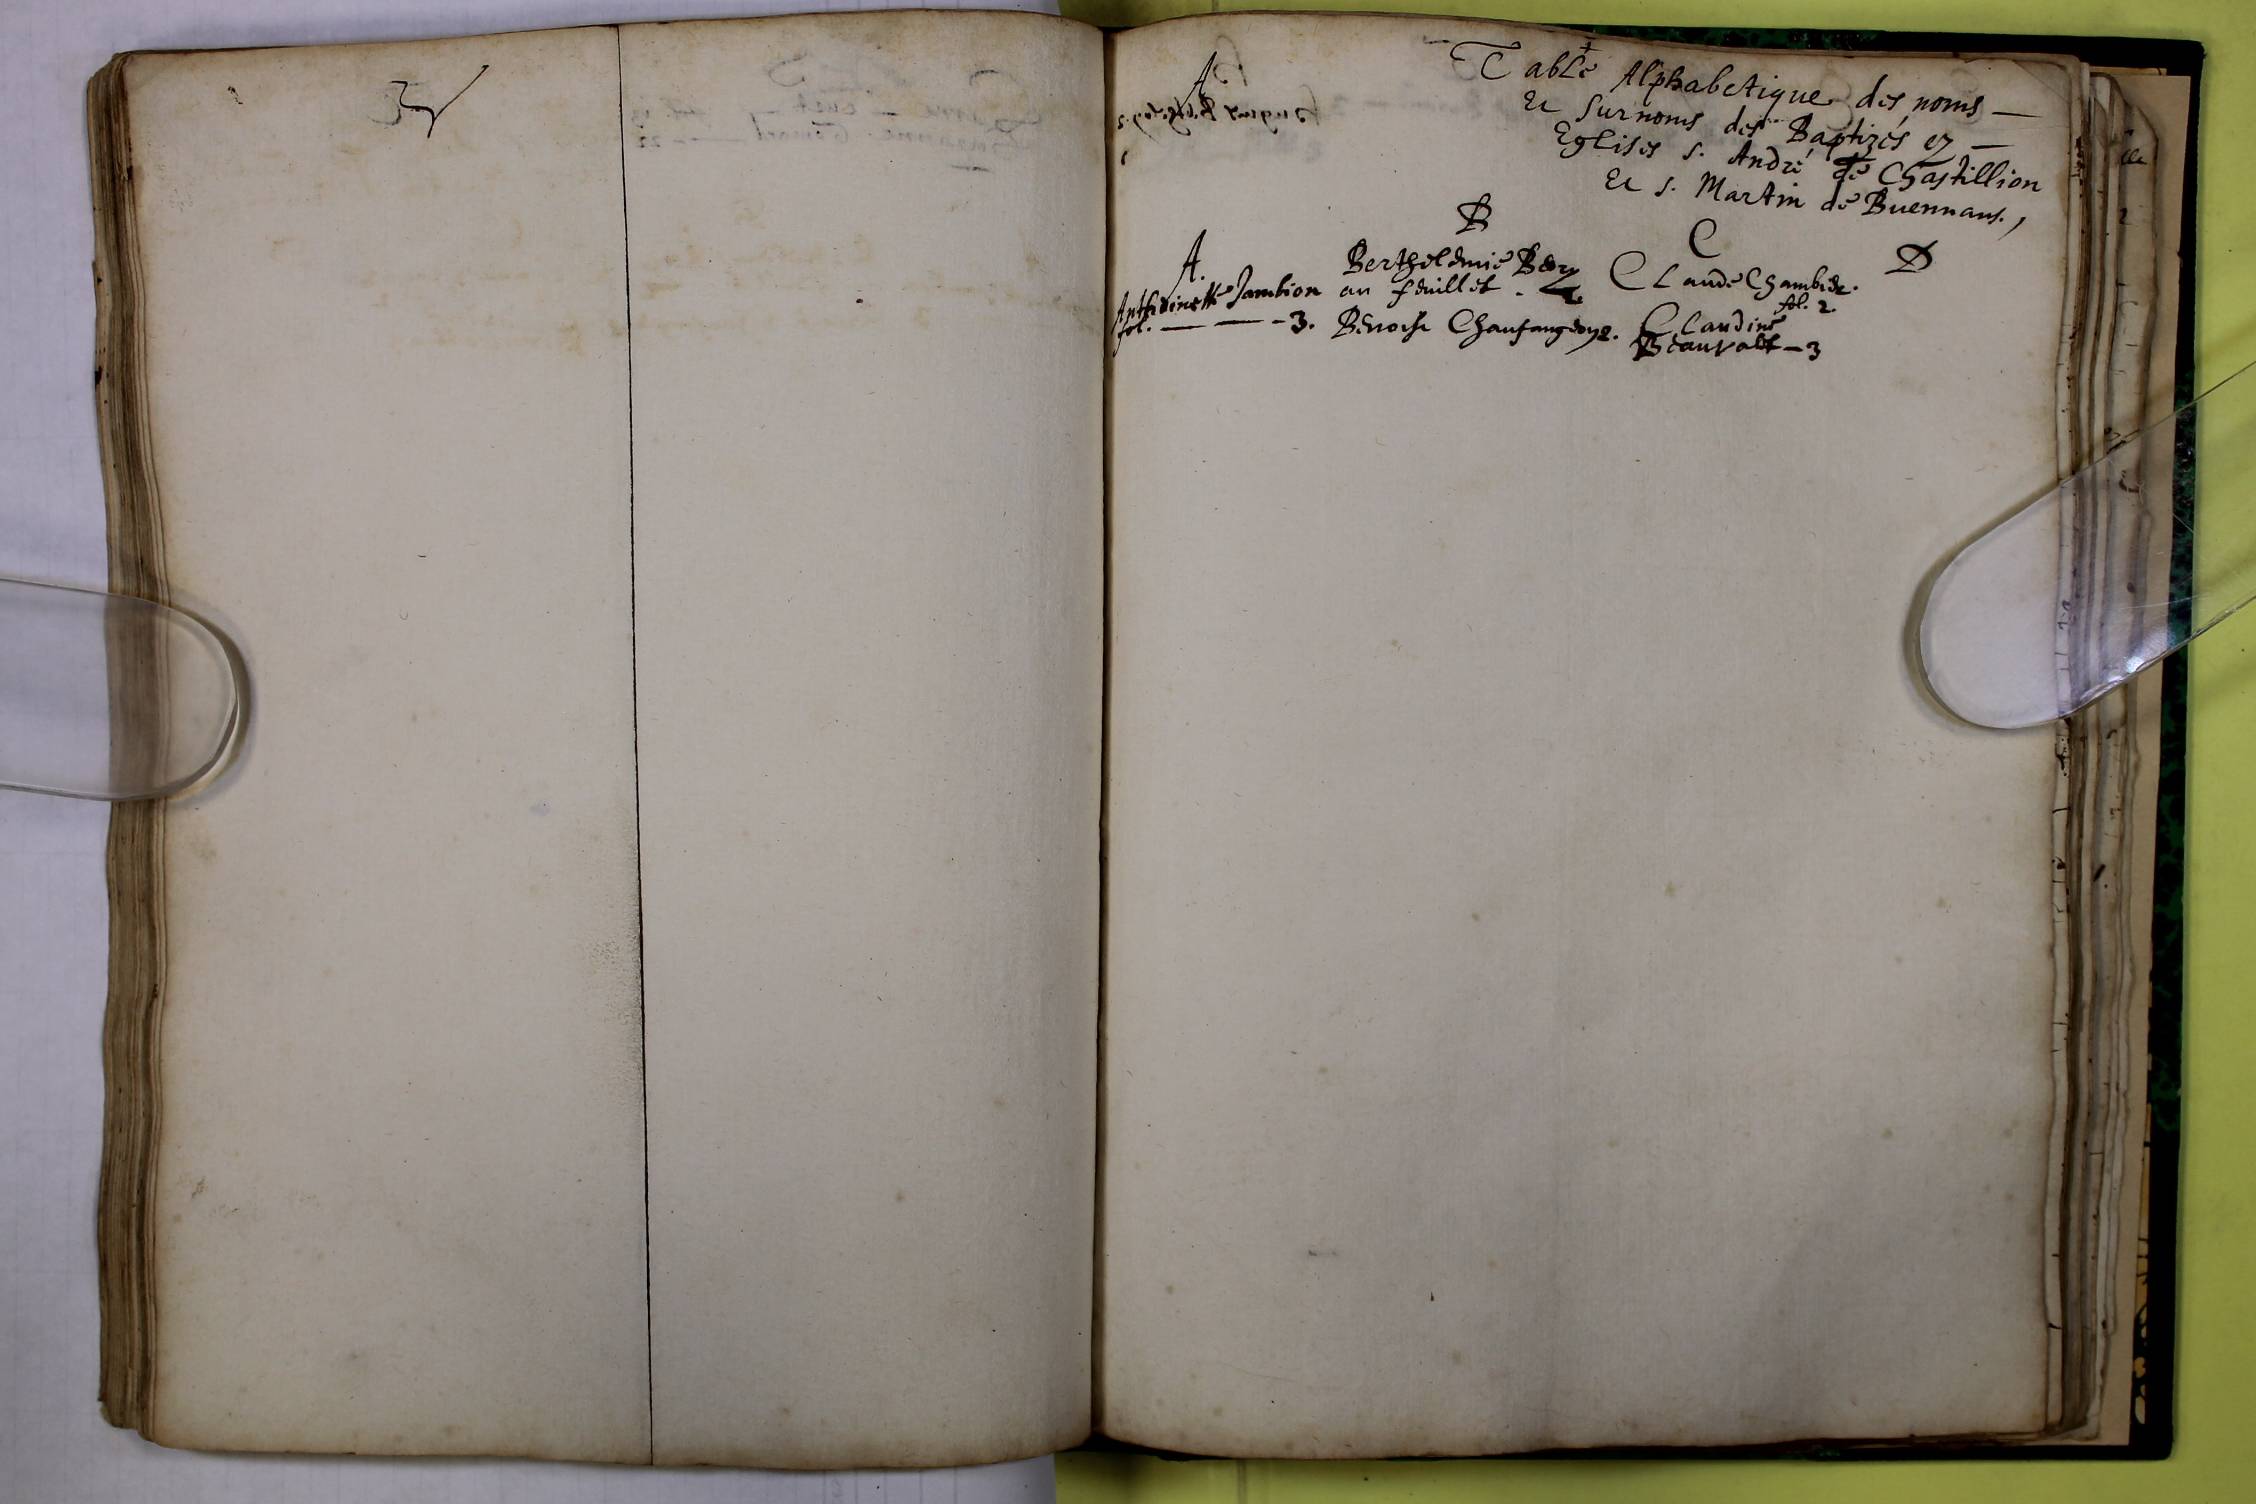 A
Table Alphabetique des noms —
Et surnoms des Baptizés ez —
Eglises s. André de Chastillion
Et s. Martin de Buennans.
A.
Anthoinette Jambion
fol. — — - 3.
B
Bertholemie
au feuillet . 2.
Benoist
C
Claude Chambier.
fol. 2.
Claudine
— 3
D